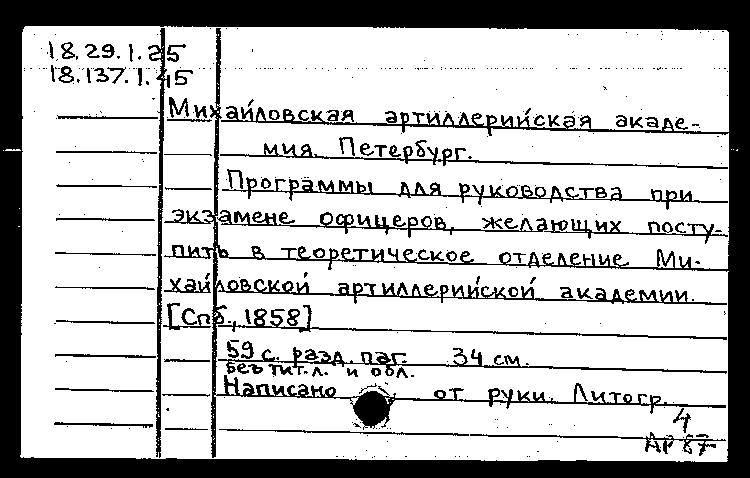 18.29.1.25
18.137.1.45
Михайловская артиллерийская акаде-
мия. Петербург.
Программы для руководства при
экзамене офицеров, желающих посту-
пить в теоретическое отделение Ми-
хайловской артиллерийской академии.
[Спб., 1858]
59 с. разд. паг. 34 см.
Без тит. л. и обл.
Написано от руки. Литогр.
4
АР 87